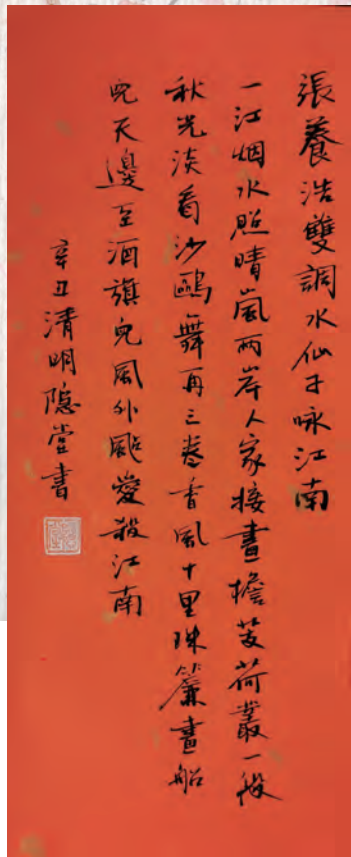 張養浩雙調水仙子咏江南
一江烟水照晴嵐兩岸人家接畫檐芰荷叢一段
秋光淡看沙鷗舞再三卷香風十里珠簾畫船
兒天邊至酒旗兒風外颭愛殺江南
辛丑清明隐堂書